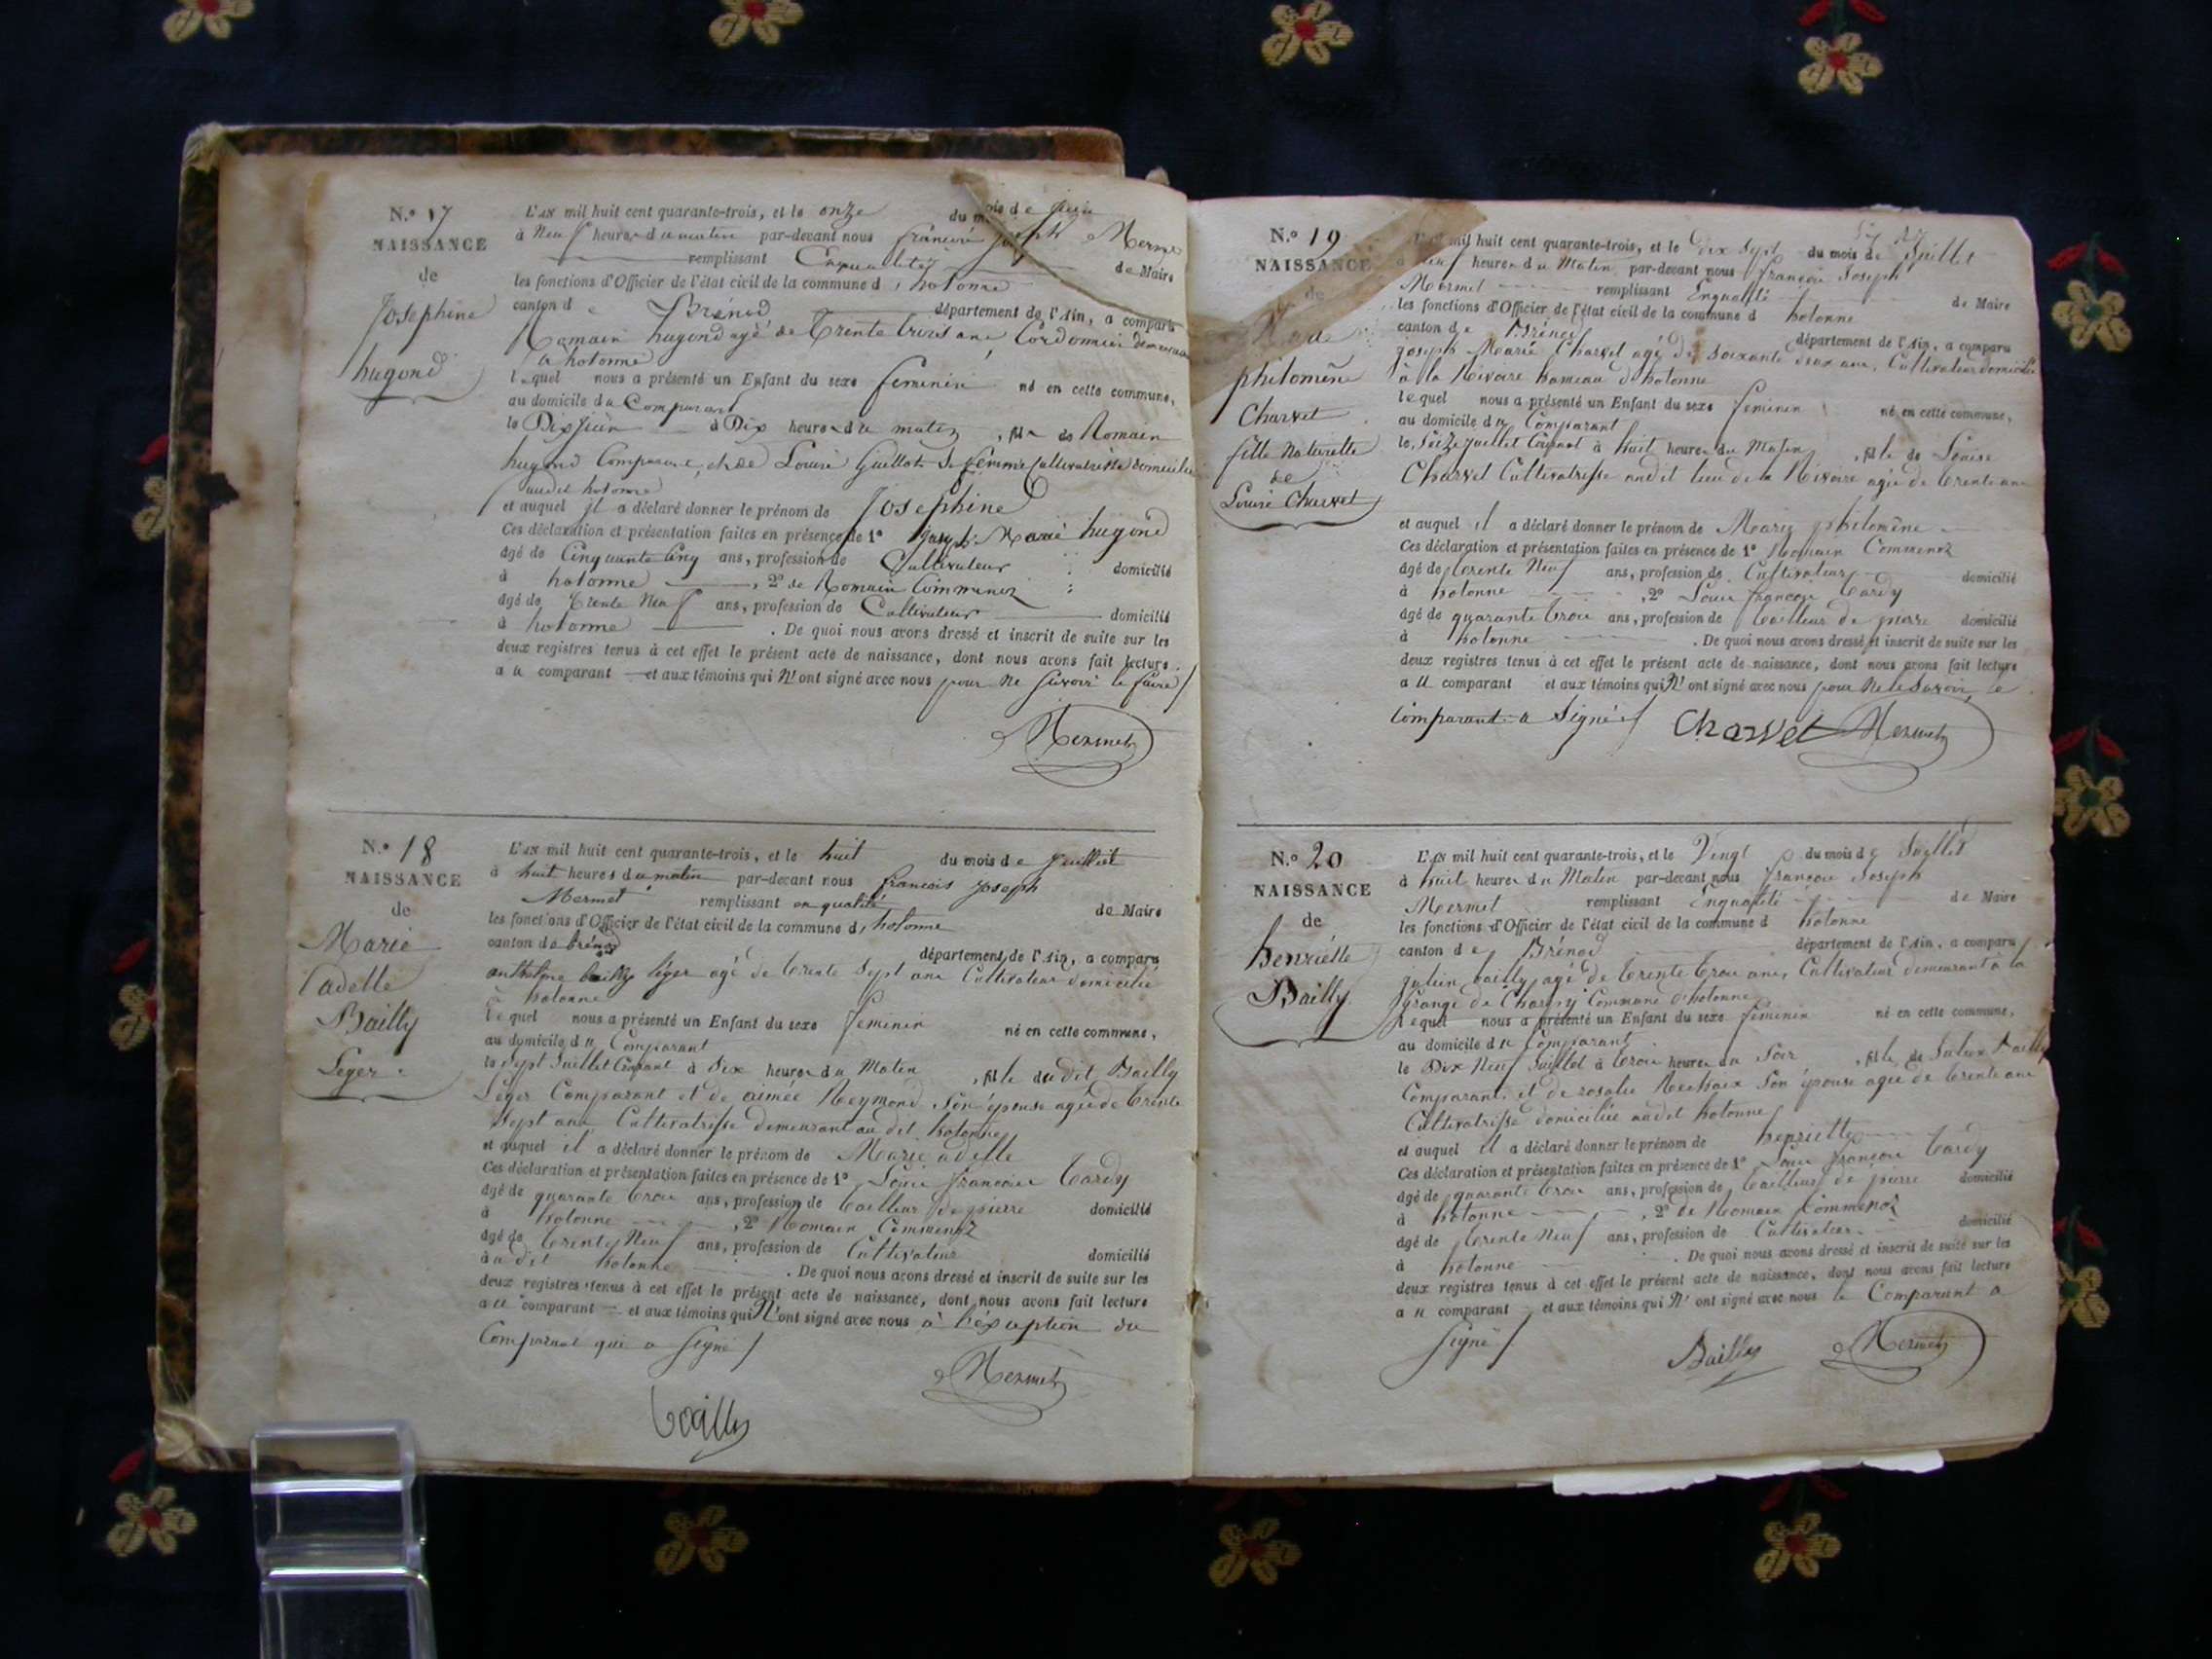 N.o 17
NAISSANCE
de
Josephine
hugond
L'an mil huit cent quarante-trois, et le onze du mois de juin
à Neuf heures du matin par-devant nous françois joseph Mermet
remplissant Enqualité de Maire
les fonctions d'Officier de l'état civil de la commune d hotonne
canton de Brénod département de l'Ain, a comparu
Romain hugond agé de Trente trois ans Cordonnier
a hotonne
lequel nous a présenté un Enfant du sexe feminin né en cette commune,
au domicile du Comparant
le Dix juin à Dix heures du matin, fille de Romain
hugond Comparant, et de Louise Guillot Sa femme Cultivatrisse domiciliée
audit hotonne
et auquel il a déclaré donner le prénom de Josephine
Ces déclaration et présentation faites en présence de 1º joseph Marie hugond
âgé de Cinquante Cinq ans, profession de Cultivateur domicilié
à hotonne, 2º de Romain Commenoz
âgé de Trente Neuf ans, profession de Cultivateur domicilié
à hotonne. De quoi nous avons dressé et inscrit de suite sur les
deux registres tenus à cet effet le présent acte de naissance, dont nous avons fait lecture
au comparant et aux témoins qui N'ont signé avec nous pour ne savoir le faire
Mermet
N.o 18
NAISSANCE
de
Marie
adelle
Bailly
Leger
L'an mil huit cent quarante-trois, et le huit du mois de juillet
à huit heures du matin par-devant nous françois joseph
Mermet remplissant en qualité de Maire
les fonctions d'Officier de l'état civil de la commune d hotonne
canton de brénod département de l'Ain, a comparu
anthelme bailly léger agé de trente Sept ans Cultivateur domicilié
à hotonne
lequel nous a présenté un Enfant du sexe feminin né en cette commune,
au domicile du Comparant
le Sept Juillet Courant à Dix heures du Matin, fille dudit Bailly
Léger Comparant et de aimée Reymond Son épouse agée de trente
Sept ans Cultivatrisse demeurant au dit hotonne
et auquel il a déclaré donner le prénom de Marie adelle
Ces déclaration et présentation faites en présence de 1º Louis françois Tardy
âgé de quarante trois ans, profession de tailleur de pierre domicilié
à hotonne, 2º Romain Commenoz
âgé de trente Neuf ans, profession de Cultivateur domicilié
à udit hotonne. De quoi nous avons dressé et inscrit de suite sur les
deux registres tenus à cet effet le présent acte de naissance, dont nous avons fait lecture
au comparant et aux témoins qui N'ont signé avec nous à l'exception du
Comparant qui a Signé
Mermet
bailly
N.o 19
NAISSANCE
de
philomène
Charvet
fille Naturelle
de
Louise Charvet
mil huit cent quarante-trois, et le dix Sept du mois de Juillet
à heures du Matin par-devant nous françois Joseph
Mermet remplissant Enqualité de Maire
les fonctions d'Officier de l'état civil de la commune d hotonne
canton de Brénod département de l'Ain, a comparu
joseph Marie Charvet agé de soixante deux ans, Cultivateur domicilié
à la Rivoire hameau d'hotonne
lequel nous a présenté un Enfant du sexe feminin né en cette commune,
au domicile du Comparant
le Seize juillet Courant à huit heures du Matin, fille de Louise
Charvet Cultivatrisse audit lieu de la Rivoire agée de trente ans
et auquel il a déclaré donner le prénom de Marie philomène
Ces déclaration et présentation faites en présence de 1º Romain Commenoz
âgé de trente Neuf ans, profession de Cultivateur domicilié
à hotonne, 2º Louis françois Tardy
âgé de quarante trois ans, profession de tailleur de pierre domicilié
à hotonne. De quoi nous avons dressé et inscrit de suite sur les
deux registres tenus à cet effet le présent acte de naissance, dont nous avons fait lecture
au comparant et aux témoins qui N'ont signé avec nous pour ne le Savoir, le
Comparant a Signé
Charvet Mermet
N.o 20
NAISSANCE
de
henriette
Bailly
L'an mil huit cent quarante-trois, et le Vingt du mois de Juillet
à huit heures du Matin par-devant nous françois Joseph
Mermet remplissant Enqualité de Maire
les fonctions d'Officier de l'état civil de la commune d hotonne
canton de Brénod département de l'Ain, a comparu
julien bailly agé de trente trois ans, Cultivateur demeurant à la
grange de Commune d'hotonne
lequel nous a présenté un Enfant du sexe feminin né en cette commune,
au domicile du Comparant
le Dix Neuf Juillet à trois heures du Soir, fille de Julien Bailly
Comparant, et de rosalie Son épouse agée de trente ans
Cultivatrisse domiciliée audit hotonne
et auquel il a déclaré donner le prénom de henriette
Ces déclaration et présentation faites en présence de 1º Louis françois Tardy
âgé de quarante trois ans, profession de tailleur de pierre domicilié
à hotonne, 2º de Romain Commenoz
âgé de trente Neuf ans, profession de Cultivateur domicilié
à hotonne. De quoi nous avons dressé et inscrit de suite sur les
deux registres tenus à cet effet le présent acte de naissance, dont nous avons fait lecture
au comparant et aux témoins qui N'ont signé avec nous le Comparant a
Signé
Bailly Mermet